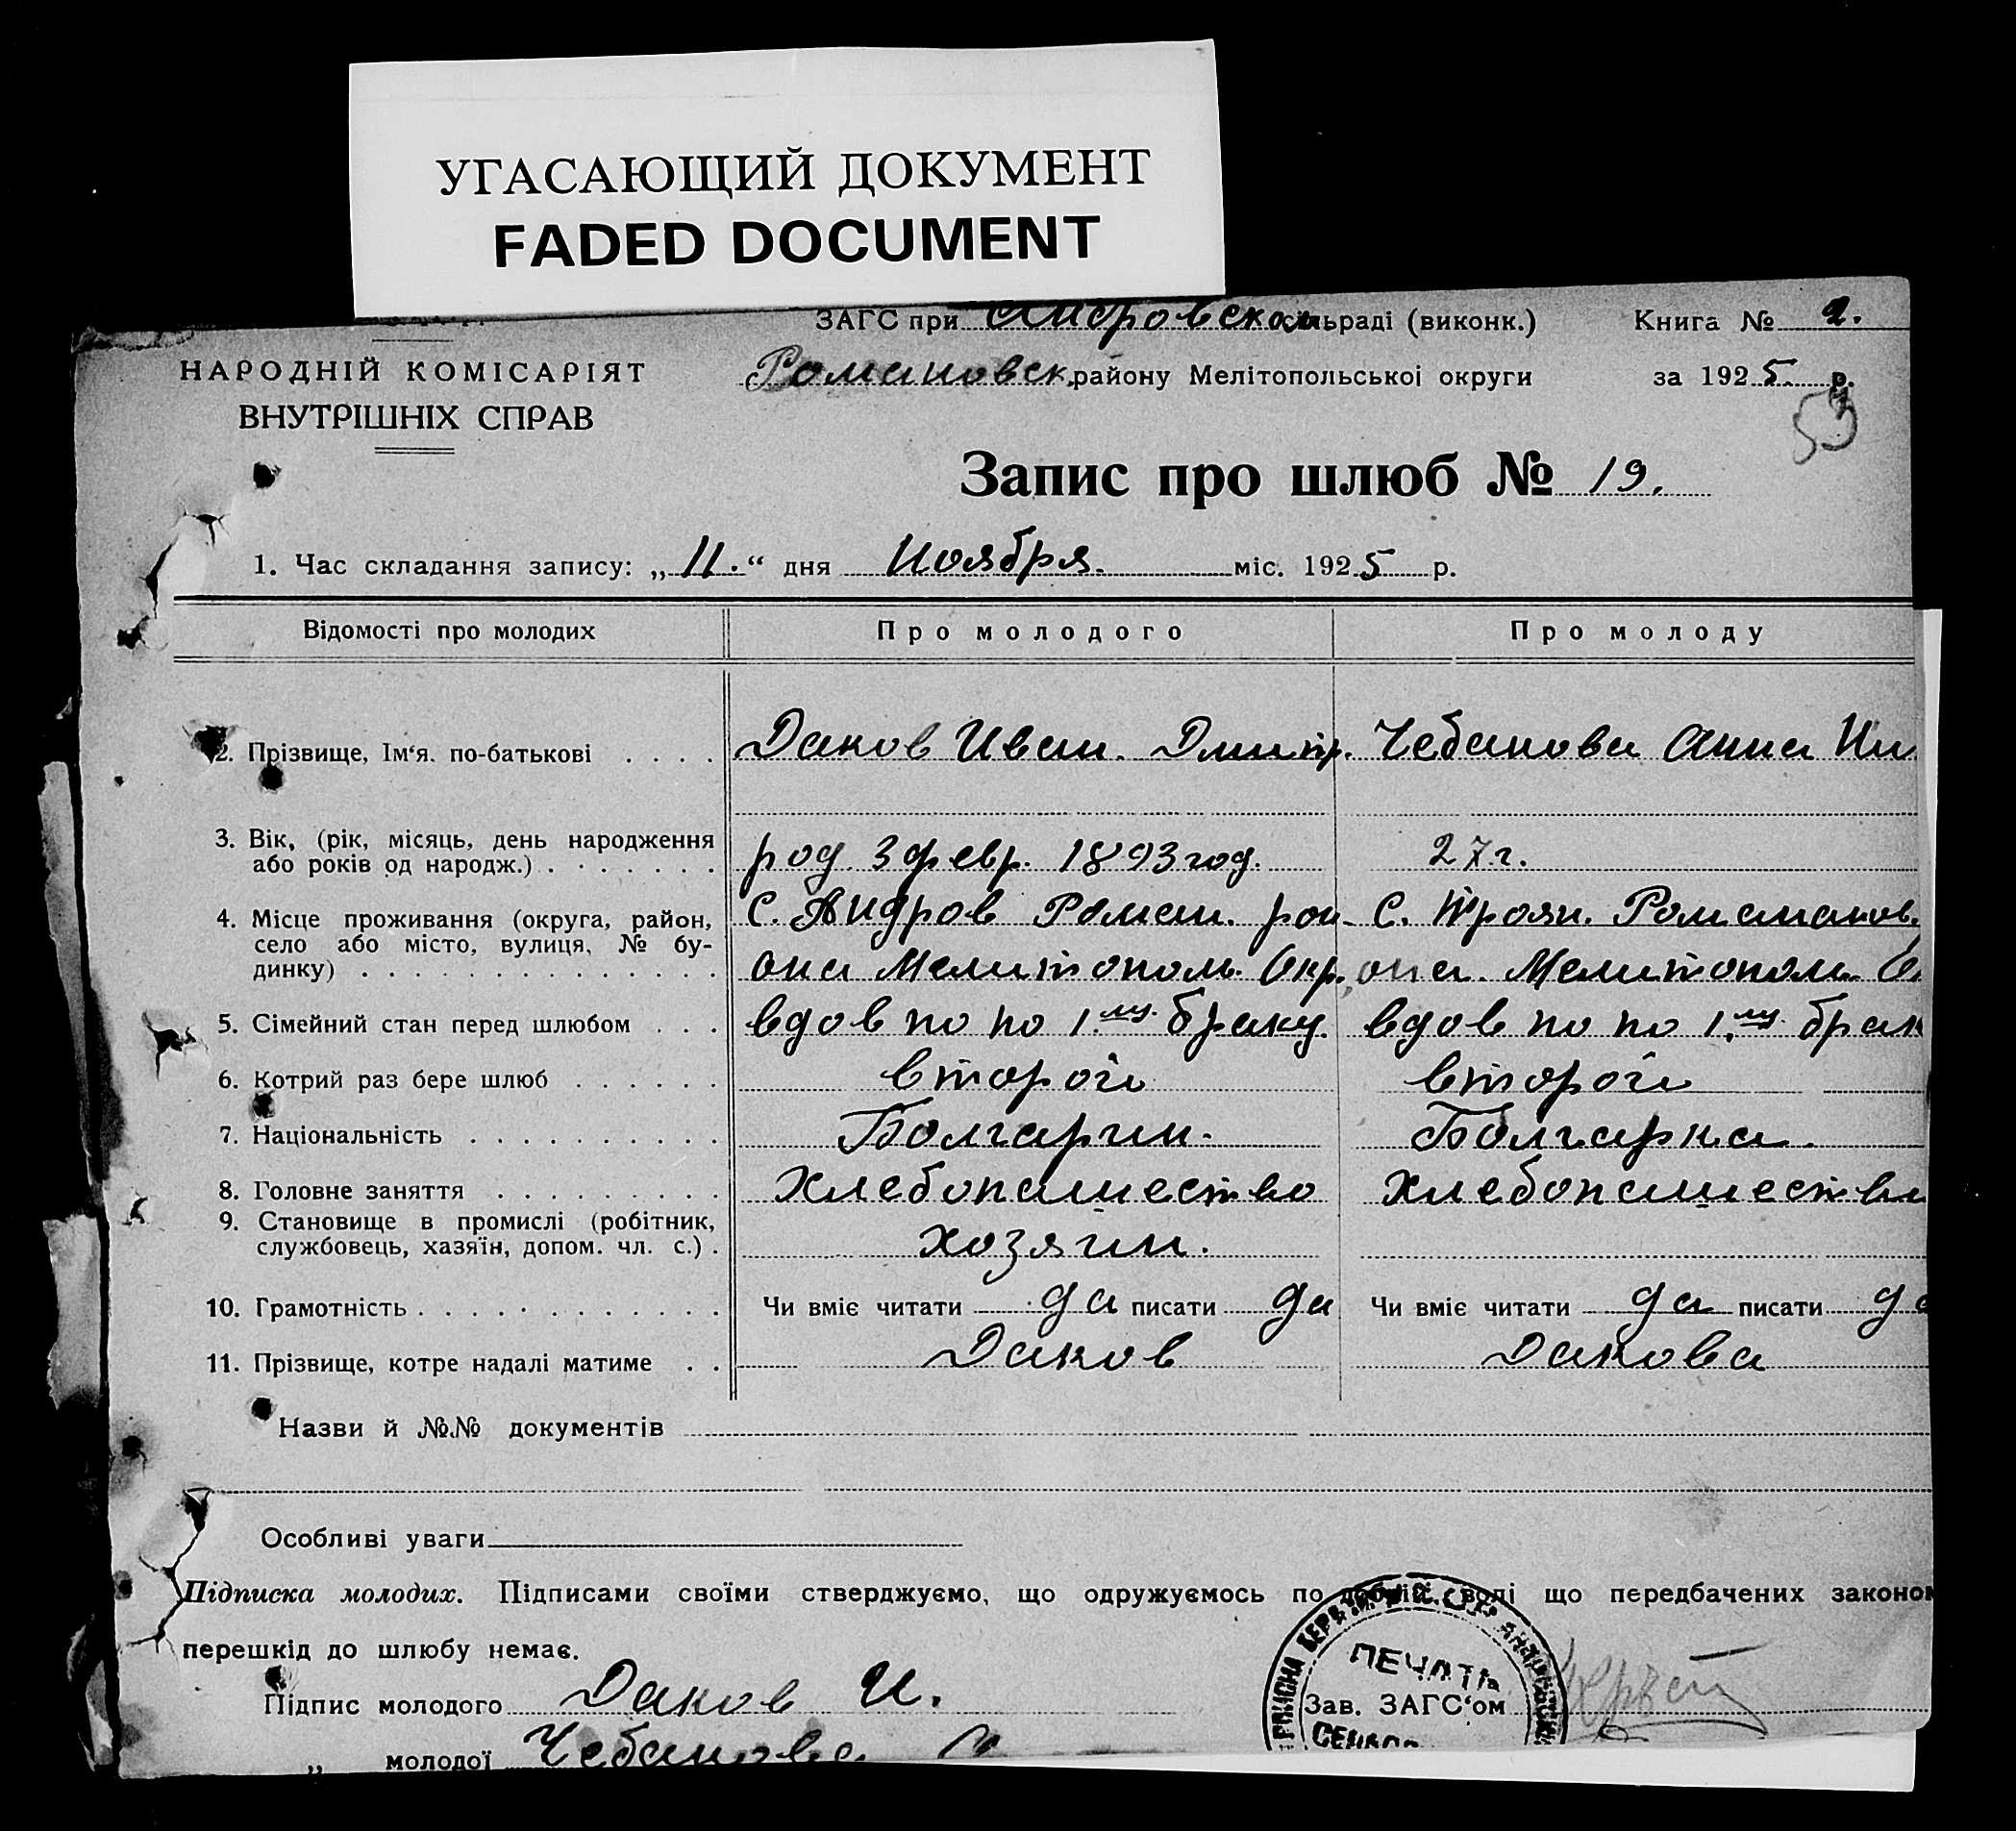 УГАСАЮЩИЙ ДОКУМЕНТ
FADED DOCUMENT
ЗАГС при Андровском сільраді (виконк.) Книга № 2.
НАРОДНІЙ КОМІСАРІЯТ
ВНУТРІШНІХ СПРАВ
Романовск. району Мелітопольської округи за 1925. р.
59
Запис про шлюб № 19.
1. Час складання запису: „11.“ дня Ноября. міс. 1925 р.
Відомості про молодих Про молодого Про молоду
2. Прізвище, Ім‘я. по-батькові . . . . Даков Иван. Дмитр. Чебанова Анна Ни
3. Вік, (рік, місяць, день народження
або років од народж.) . . . . . . . род. 3 февр. 1893 год. 27 г.
4. Місце проживання (округа, район, с. Андров Роман. рай- с. Троян. Романов.
село або місто, вулиця, № бу-
динку) . . . . . . . . . . . . . . . она Мелитополь. Окр. она. Мелитополь.
5. Сімейний стан перед шлюбом . . . вдов по по 1.му браку. вдов по по 1.му брак
6. Котрий раз бере шлюб . . . . . . второй второй
7. Національність . . . . . . . . . . Болгарин. Болгарка.
8. Головне заняття . . . . . . . . . хлебопашество хлебопашество
9. Становище в промислі (робітник,
службовець, хазяїн, допом. чл. с.) . хозяин.
10. Грамотність . . . . . . . . . . . . Чи вміє читати да писати да Чи вміє читати да писати да
11. Прізвище, котре надалі матиме . . Даков Дакова
Назви й №№ документів
Особливі уваги
Підписка молодих. Підписами своїми стверджуємо, що одружуємось по добрій волі що передбачених законом
перешкід до шлюбу немає.
ПЕЧАТЬ
Підпис молодого Даков И. Зав. ЗАГС‘ом
„ молодої Чебанова